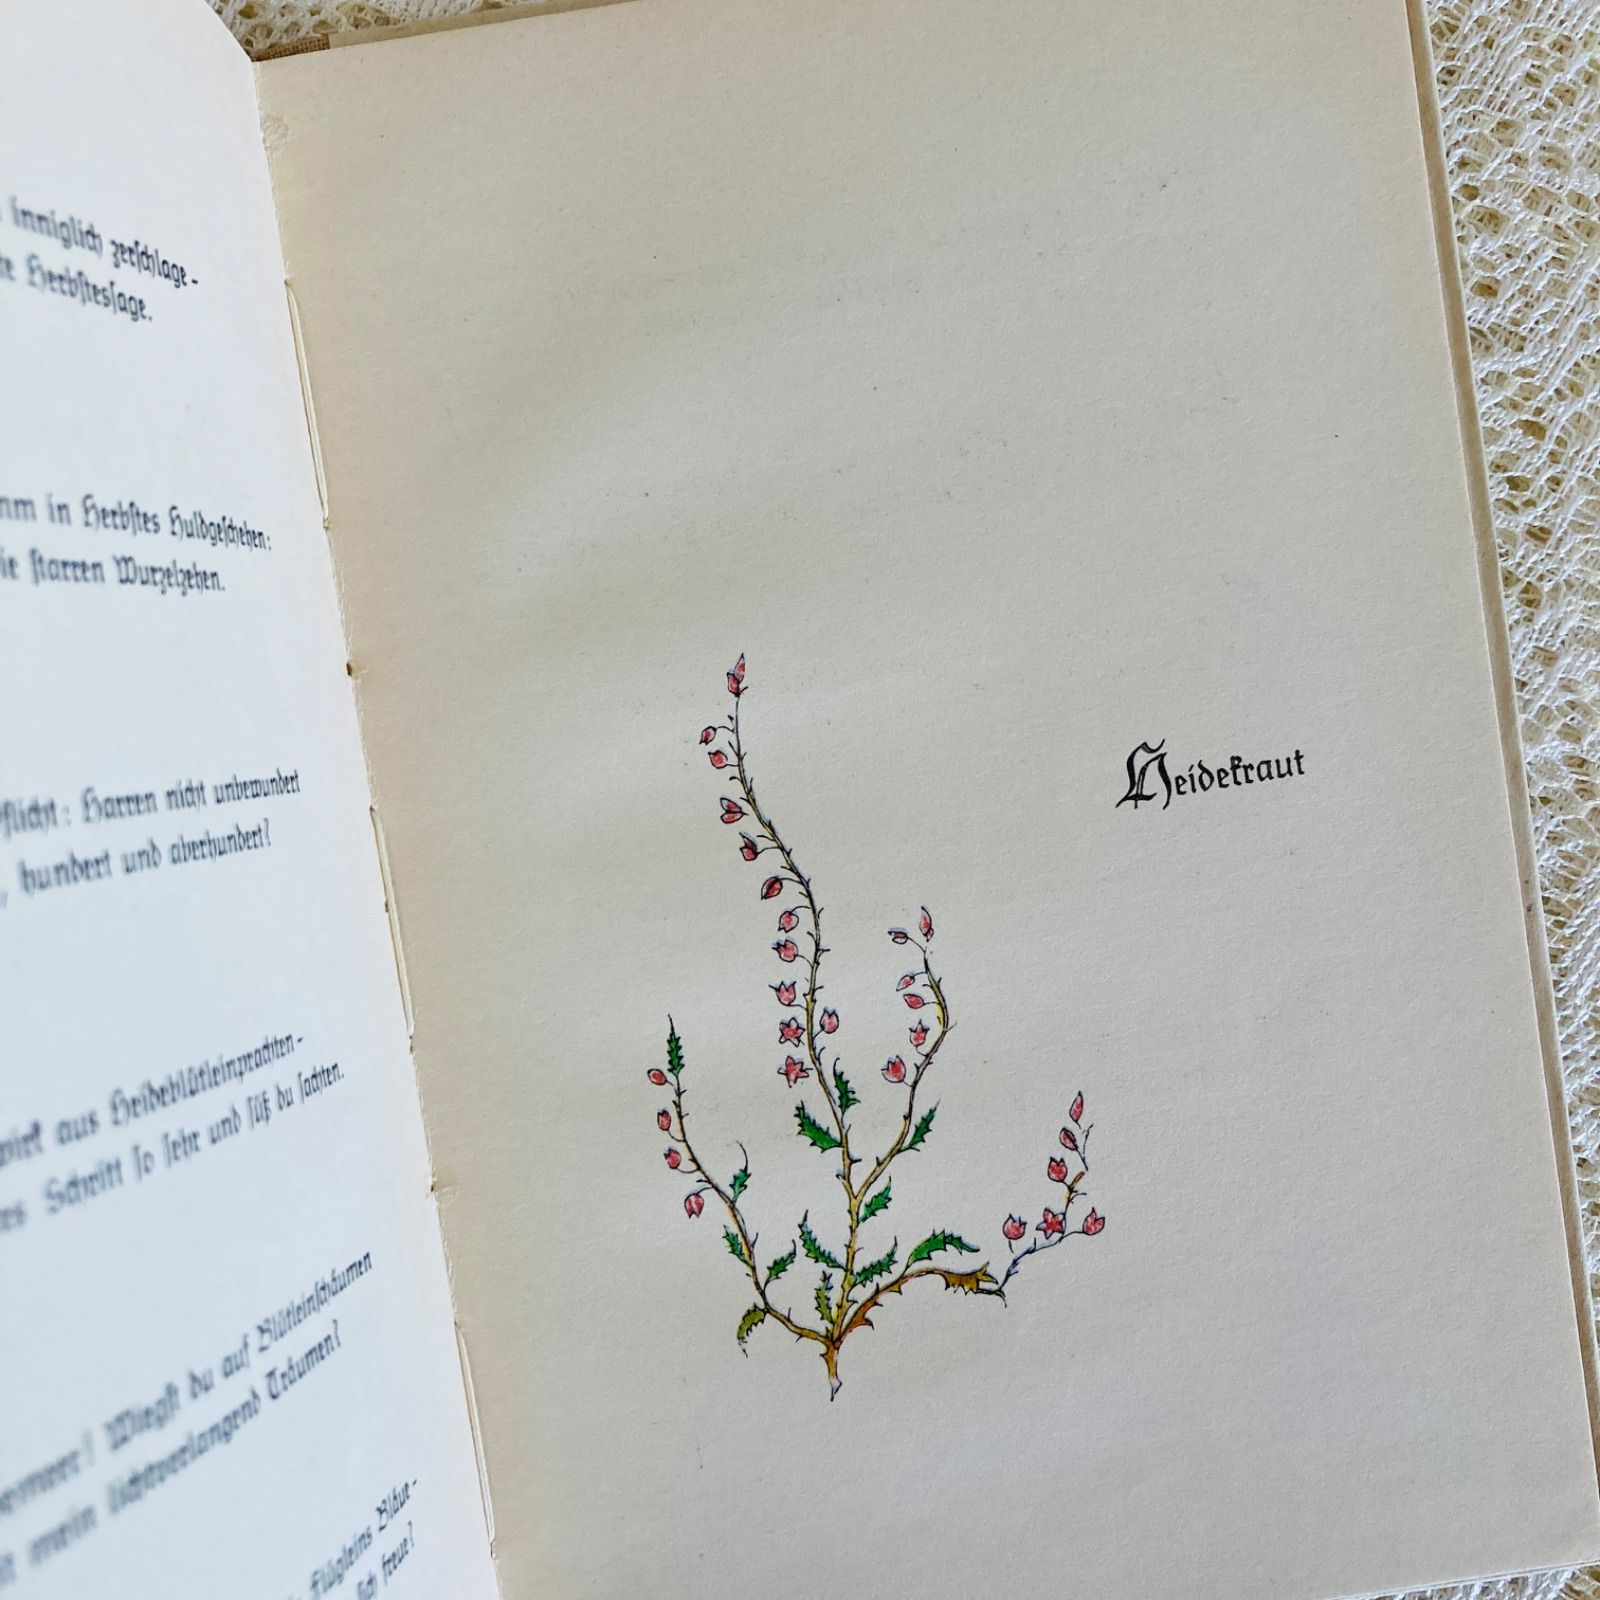 inniglich zerschlage-
te Herbstessage.
in Herbstes Huldgeschehen:
ie starren Wurzelzehen.
flicht: Harren nicht unbewundert
, hundert und aberhundert?
aus Heideblütleinprachten-
es Schritt so sehr und süß du sachten.
Wiegst du auf Blütleinschäumen
mein lichtverlangend Träumen?
Flügleins Bläue-
ich freue?
Heidekraut